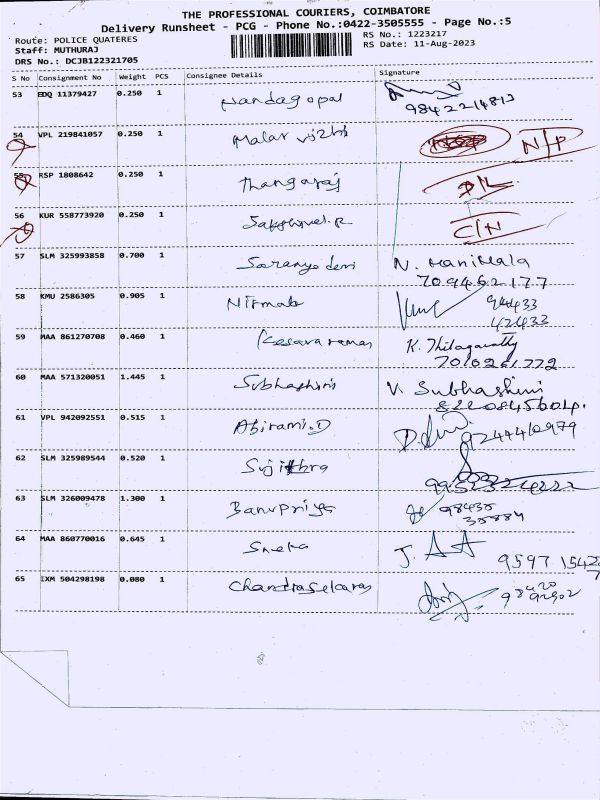 THE PROFESSIONAL COURIERS, COIMBATORE
Delivery Runsheet - PCG - Phone No.:0422-3505555 - Page No.:5
Route: POLICE QUATERES
RS No.: 1223217
Staff: MUTHURAJ
RS Date: 11-Aug-2023
DRS No.: DCJB122321705
S No Consignment No Weight PCS Consignee Details Signature
53 EDQ 11379427 0.250 1 Nandagopal
9842214813
54 VPL 219841057 0.250 1 Malar vizhi N/P
55 RSP 1808642 0.250 1 Thangaraj D/L
56 KUR 558773920 0.250 1 Sakthivel.R C/N
57 SLM 325993858 0.700 1 Saranya devi N. Manimala
709462177
58 KMU 2586305 0.905 1 Nirmala 94433
42433
59 MAA 861270708 0.460 1 Kesavaraman K. Thilagavathy
7010261772
60 MAA 571320051 1.445 1 Subhashini V. Subhashini
8220845604.
61 VPL 942092551 0.515 1 Abirami.D 9244410979
62 SLM 325989544 0.520 1 Sujithra
9952324222
63 SLM 326009478 1.300 1 Banupriya 98435
35884
64 MAA 860770016 0.645 1 Sneha J.
9597 15427
65 IXM 504298198 0.080 1 Chandraselaras 98420
92902